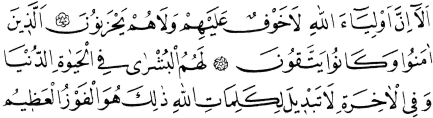 اَلَٓا اِنَّ اَوْلِيَٓاءَ اللّٰهِ لَاخَوْفٌ عَلَيْهِمْ وَلَاهُمْ يَحْزَنُونَۚ ۝ اَلَّذ۪ينَ
اٰمَنُوا وَكَانُوا يَتَّقُونَۜ ۝ لَهُمُ الْبُشْرٰى فِي الْحَيٰوةِ الدُّنْيَا
وَفِي الْاٰخِرَةِۜ لَاتَبْد۪يلَ لِكَلِمَاتِ اللّٰهِۜ ذٰلِكَ هُوَ الْفَوْزُ الْعَظ۪يمُۜ